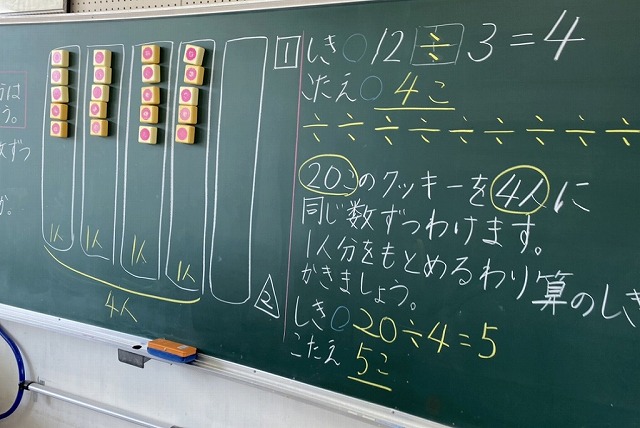 1人 1人 1人 1人
4人
2
1 しき 12÷3=4
こたえ 4こ
÷ ÷ ÷ ÷ ÷ ÷ ÷ ÷ ÷
20このクッキーを4人に
同じ数ずつわけます。
1人分をもとめるわり算のしき
かきましょう。
しき 20÷4=5
こたえ 5こ